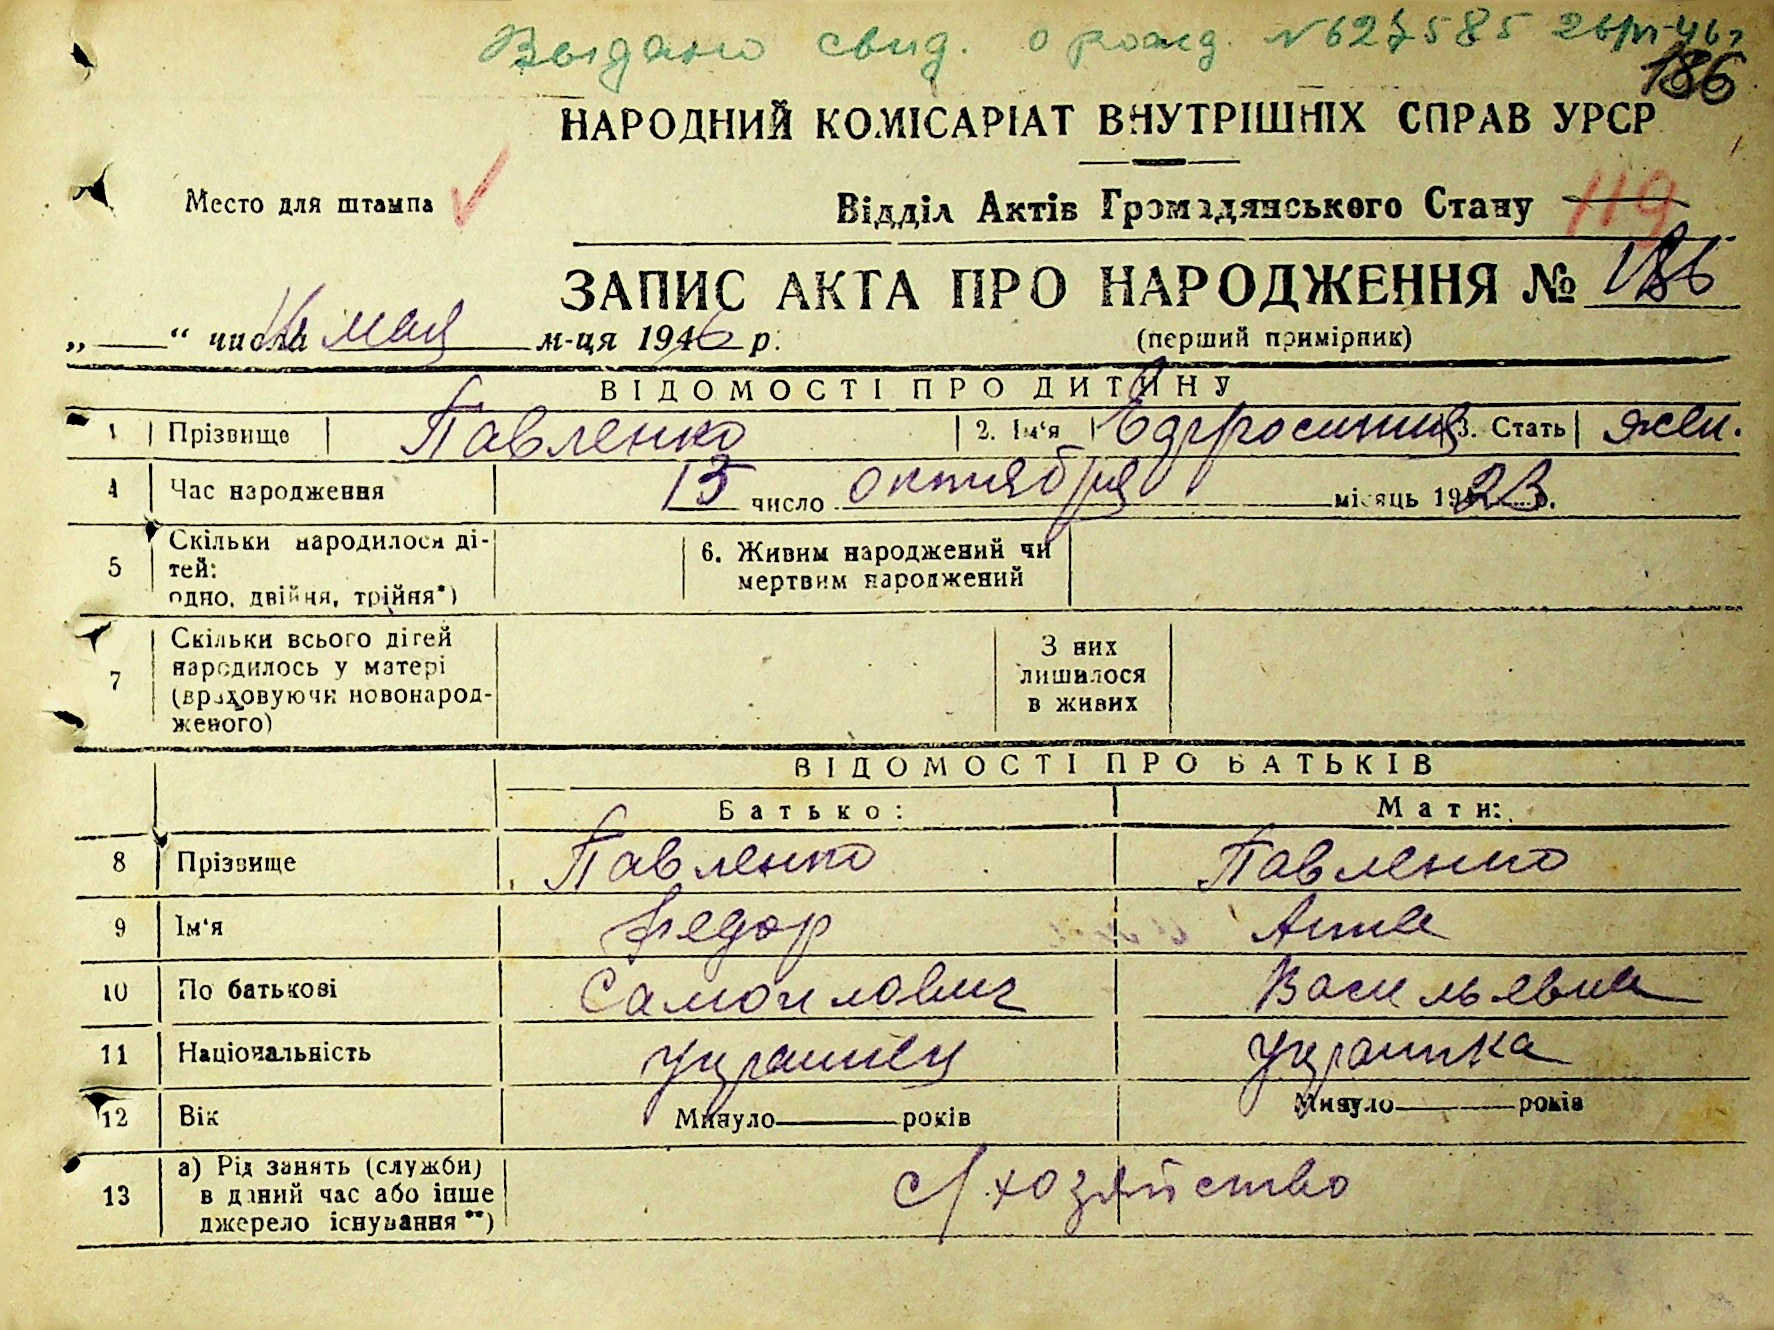 Выдано свид. о рожд. №627585
186
НАРОДНИЙ КОМІСАРІАТ ВНУТРІШНІХ СПРАВ УРСР
Место для штампа
Відділ Актів Громадянського Стану 119
ЗАПИС АКТА ПРО НАРОДЖЕННЯ № 186
„ “ числа мая м-ця 1946 р.
(перший примірник)
ВІДОМОСТІ ПРО ДИТИНУ
1 Прізвище Павленко 2. Ім‘я Ефросиния 3. Стать жен.
4 Час народження 15 число октября місяць 1923 р.
5 Скільки народилося ді-
тей:
одно, двійня, трійня*)
6. Живим народжений чи
мертвим народжений
7 Скільки всього дітей
народилось у матері
(враховуючи новонарод-
женого)
З них
лишилося
в живих
ВІДОМОСТІ ПРО БАТЬКІВ
Батько: Мати:
8 Прізвище Павленко Павленко
9 Ім‘я Федор Анна
10 По батькові Самойлович Васильевна
11 Національність украинец украинка
12 Вік Минуло років Минуло років
13 а) Рід занять (служби)
в даний час або інше
джерело існування**)
с/хозяйство